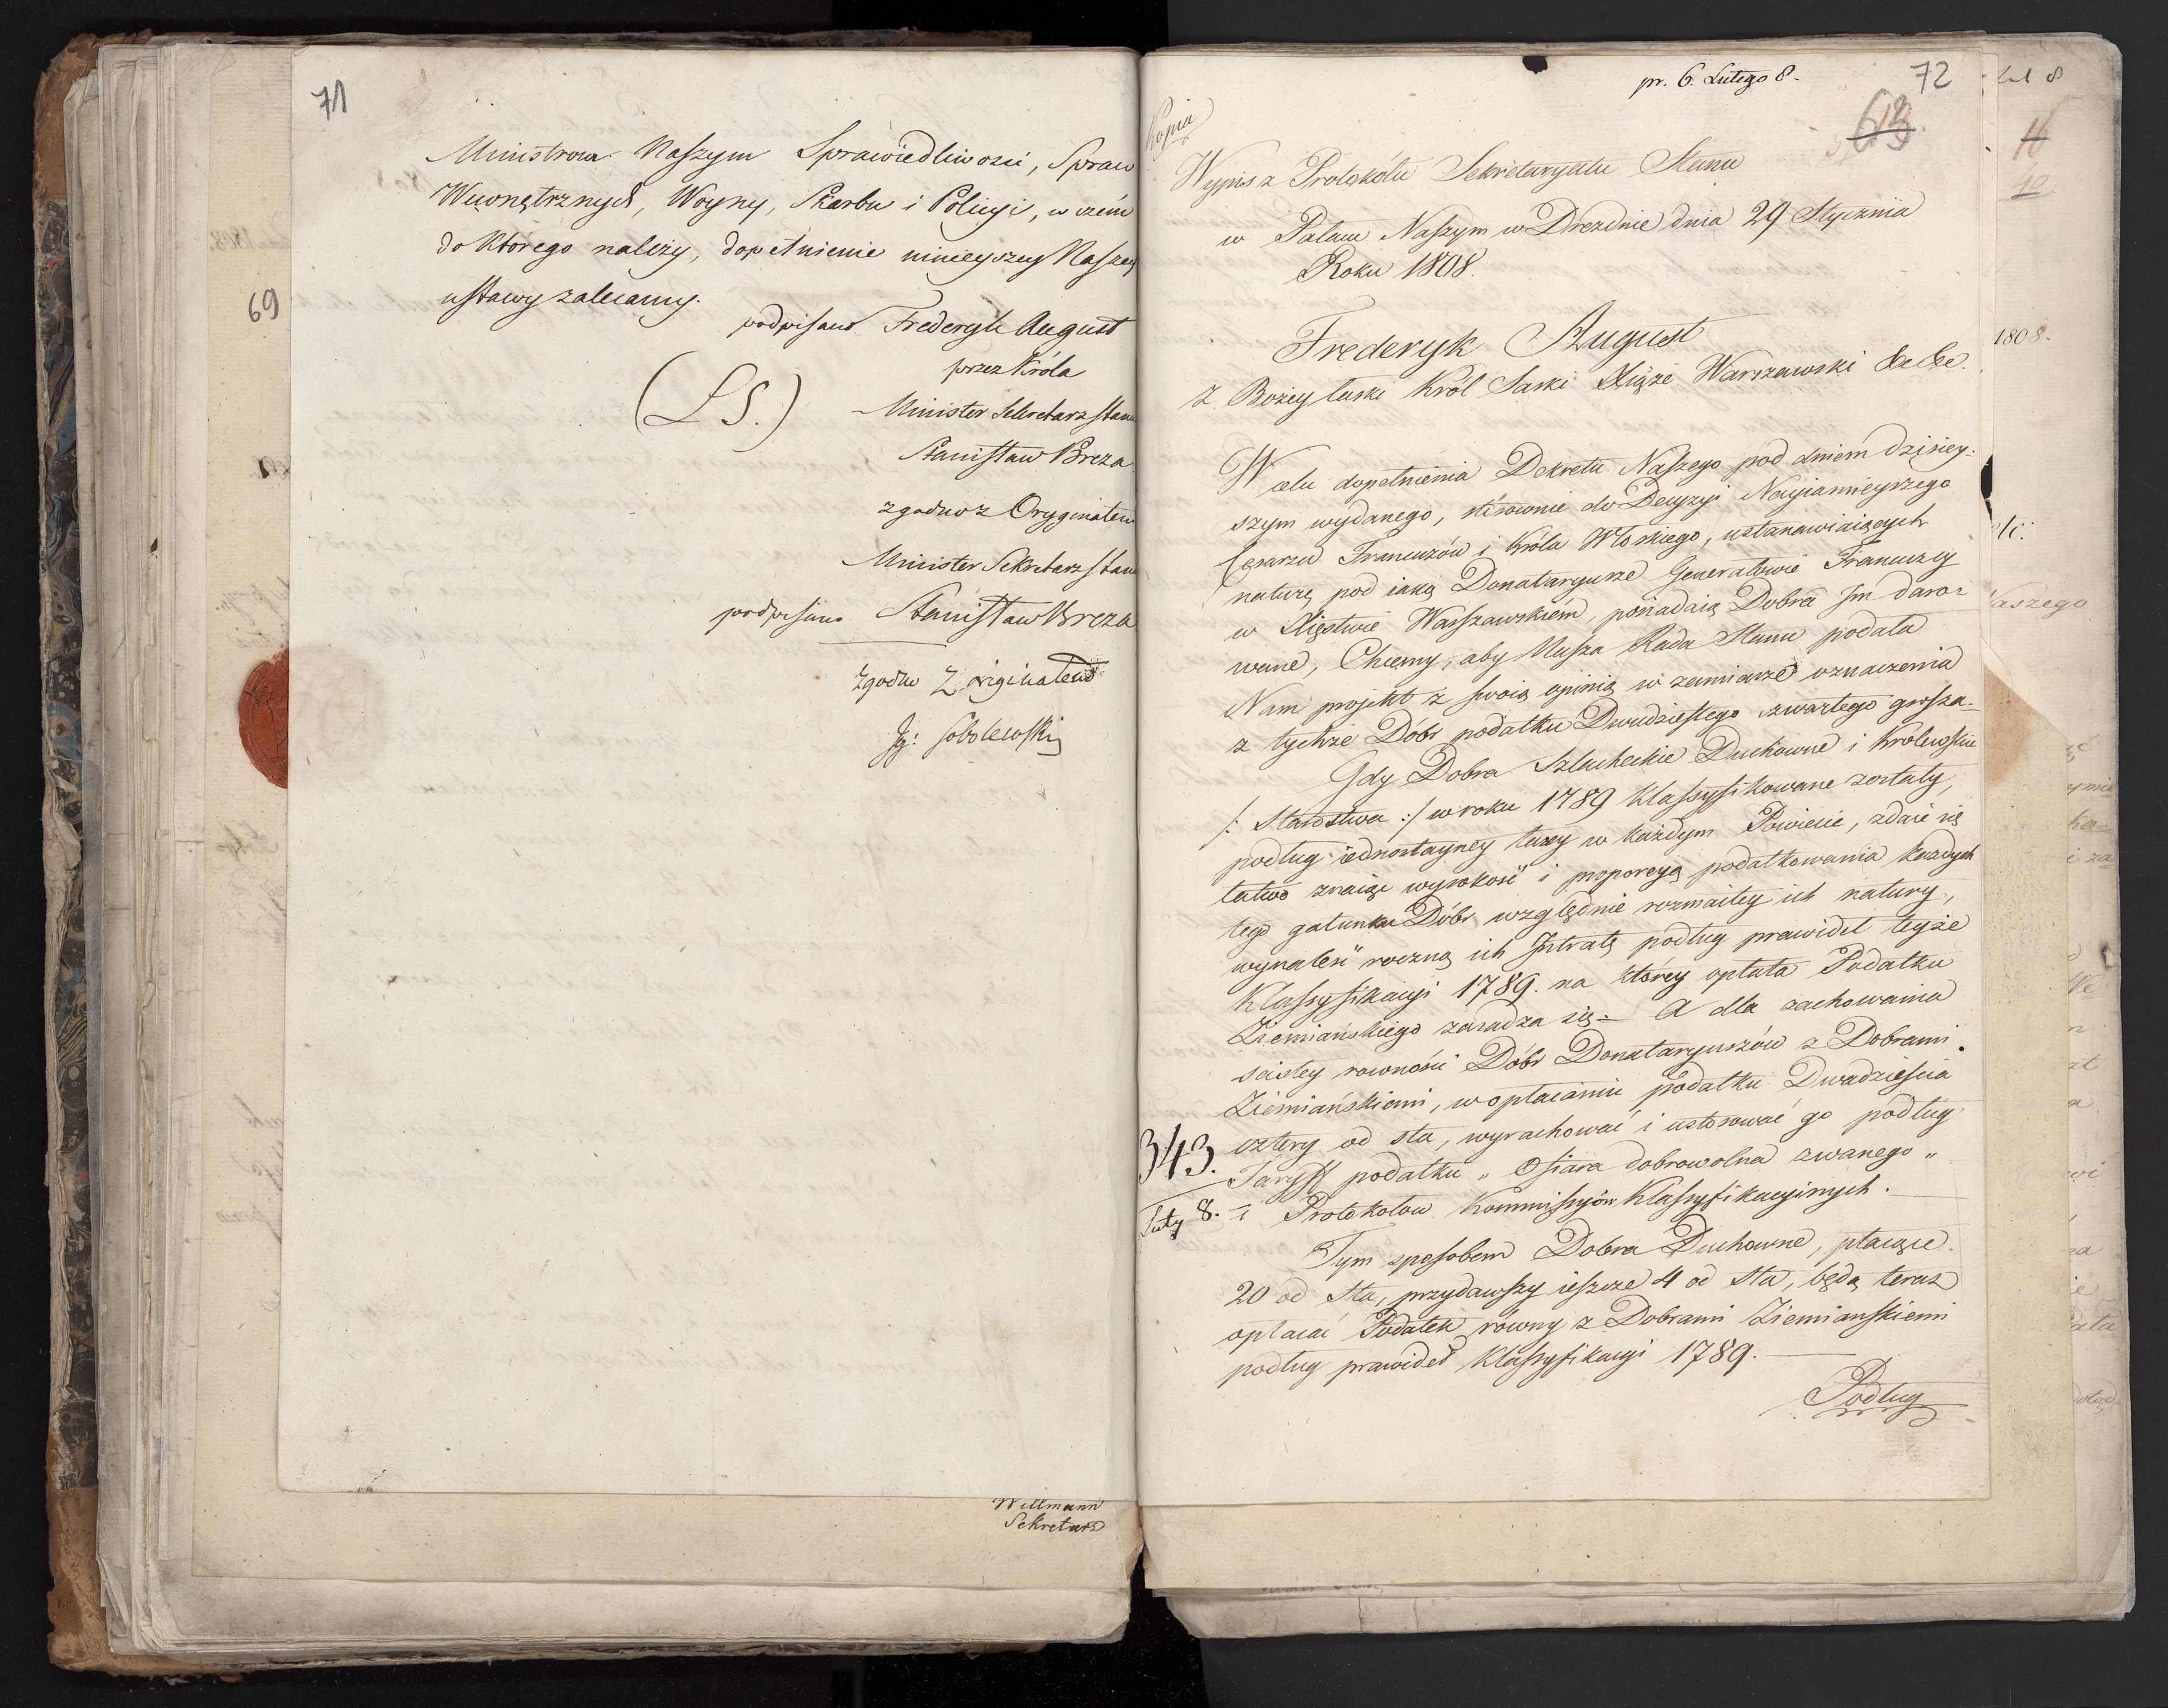 71
Ministrom Naszym Sprawiedliwości, Spraw
Wewnętrznych, Woyny, Skarbu i Policyi, w czém
do którego należy, dopełnienie ninieyszey Naszey
ustawy zalecamy.
podpisano Frederyk August
przez Króla
(LS.)
Minister Sekretarz Stanu
Stanisław Breza
zgodno z Oryginałem
Minister Sekretarz Stanu
podpisano Stanisław Breza
Zgodno z originałem
Jg: Sobolewski
69
Willmann
Sekretarz
pr. 6. Lutego 8.
72
63
Kopia
Wypis z Protokółu Sekretaryatu Stanu
w Pałacu Naszym w Dreznie dnia 29 Stycznia
Roku 1808.
Frederyk August
z Bożey łaski Król Saski Xiąże Warszawski &c &c.
W celu dopełnienia Dekretu Naszego pod dniem dzisiey-
szym wydanego, stósownie do Decyzyi Nayiaśnieyszego
Cesarza Francuzów i Króla Włoskiego, ustanawiaiących
naturę pod iaką Donataryusze Generałowie Francuzcy
w Xięstwie Warszawskiém, posiadaią Dobra Jm daro-
wane, Chcemy, aby Nasza Rada Stanu podała
Nam projekt z swoią opinią w zamiarze oznaczenia
z tychże Dóbr podatku Dwudziestego czwartego grosza.
Gdy Dobra Szlacheckie Duchowne i Królewskie
/: Starostwa :/ w roku 1789 klassyfikowane zostały,
podług iednostayney taxy w każdym Powiecie, zdaie się
łatwo znaiąc wysokość i proporcyą podatkowania każdych
tego gatunku Dóbr względnie rozmaitey ich natury,
wynaleść roczną ich Intratę podług prawideł teyże
Klassyfikacyi 1789. na którey opłata Podatku
Ziemiańskiego zasadza się. A dla zachowania
ścisłey równości Dóbr Donataryuszów z Dobrami
Ziemiańskiemi, w opłacaniu podatku Dwadzieścia
cztery od sta, wyrachować i ustosować go podług
Taryff podatku „ Ofiara dobrowolna zwanego „
i Protokołow Kommissyów Klassyfikacyinych.
343.
Luty 8.
Tym sposobem Dobra Duchowne, płacące
20 od sta, przydawszy ieszcze 4 od sta, będą teraz
opłacać Podatek równy z Dobrami Ziemianskiemi
podług prawideł Klassyfikacyi 1789.
Podług
16
1808.
etc: